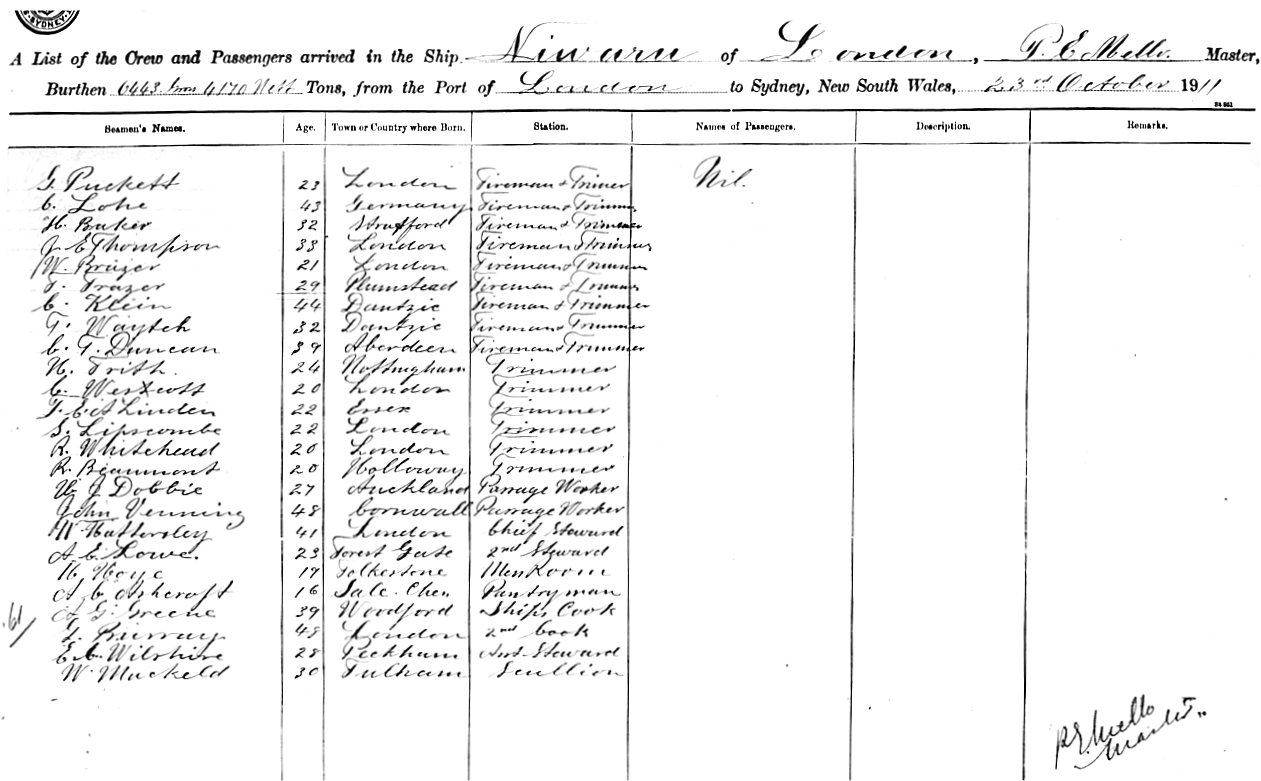 SYDNEY
A List of the Crew and Passengers arrived in the Ship Niwaru of London, P. E. Mello. Master,
Burthen 6443 4170 Nett Tons, from the Port of London to Sydney, New South Wales, 23rd October 1911
Seamen's Names. Age. Town or Country where Born. Station. Names of Passengers. Description. Remarks.
G. Puckett 23 London Fireman & Trimer Nil.
C. Lohe 43 Germany Fireman & Trimmer
H. Baker 32 Stratford Fireman & Trimmer
J E Thompson 33 London Fireman & Trimmer
W. Brazer 21 London Fireman & Trimmer
F. Frazer 29 Plumstead Fireman & Trimmer
C. Klein 44 Dantzic Fireman & Trimmer
F. Waytch 32 Dantzic Fireman & Trimmer
C. T. Duncan 39 Aberdeen Fireman & Trimmer
H. Frith. 24 Nottingham Trimmer
C. Westcott 20 London Trimmer
F. E. A Linden 22 Essex Trimmer
S. Lipscombe 22 London Trimmer
R. Whitehead 20 London Trimmer
R. Beaumont 20 Holloway Trimmer
W J Dobbie 27 Auckland Passage Worker
John Venning 48 Cornwall Passage Worker
W Hattersley 41 London Chief Steward
A E Lowe. 23 Forest Gate 2nd Steward
H. Hoye 17 Folkestone Mess Room
A. C Ashcroft 16 Sale. Ches Pantryman
A G. Greene 39 Woodford Ships Cook
61/
48 London 2nd Cook
E. C. Wilshire 28 Peckham Asst Steward
W. Mackeld 30 Fulham Scullion
P. E. Mello
Master